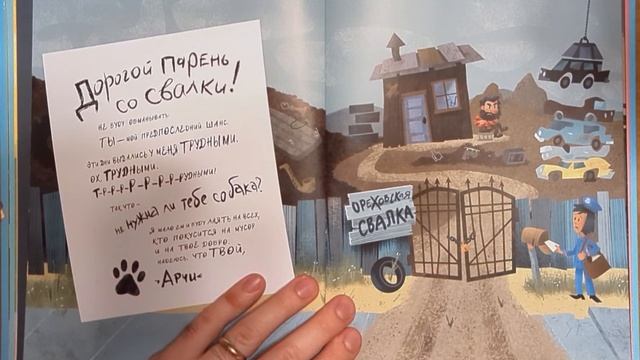 Дорогой Парень
со Свалки!
Не буду обманывать
Ты — мой предпоследний шанс.
Эти дни выдались у меня трудными.
Ох, трудными.
Т-р-р-р-р-р-р-рудными!
Так что -
не нужна ли тебе собака?
Я мало ем и буду лаять на всех,
кто покусится на мусор
и на твоё добро.
Надеюсь, что твой,
- Арчи -
Ореховская
свалка